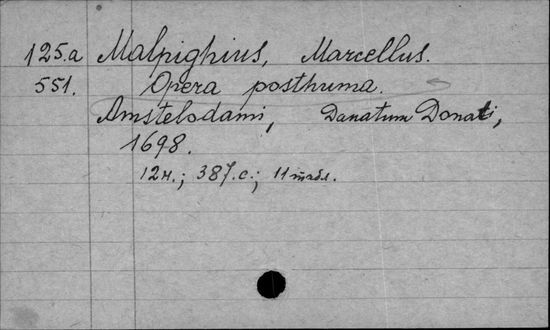 125.a Malpighius, Marcellus.
551. Opera posthuma.
Amstelodami, Danatum Donati,
1698.
12н.; 387.с.; 11 табл.